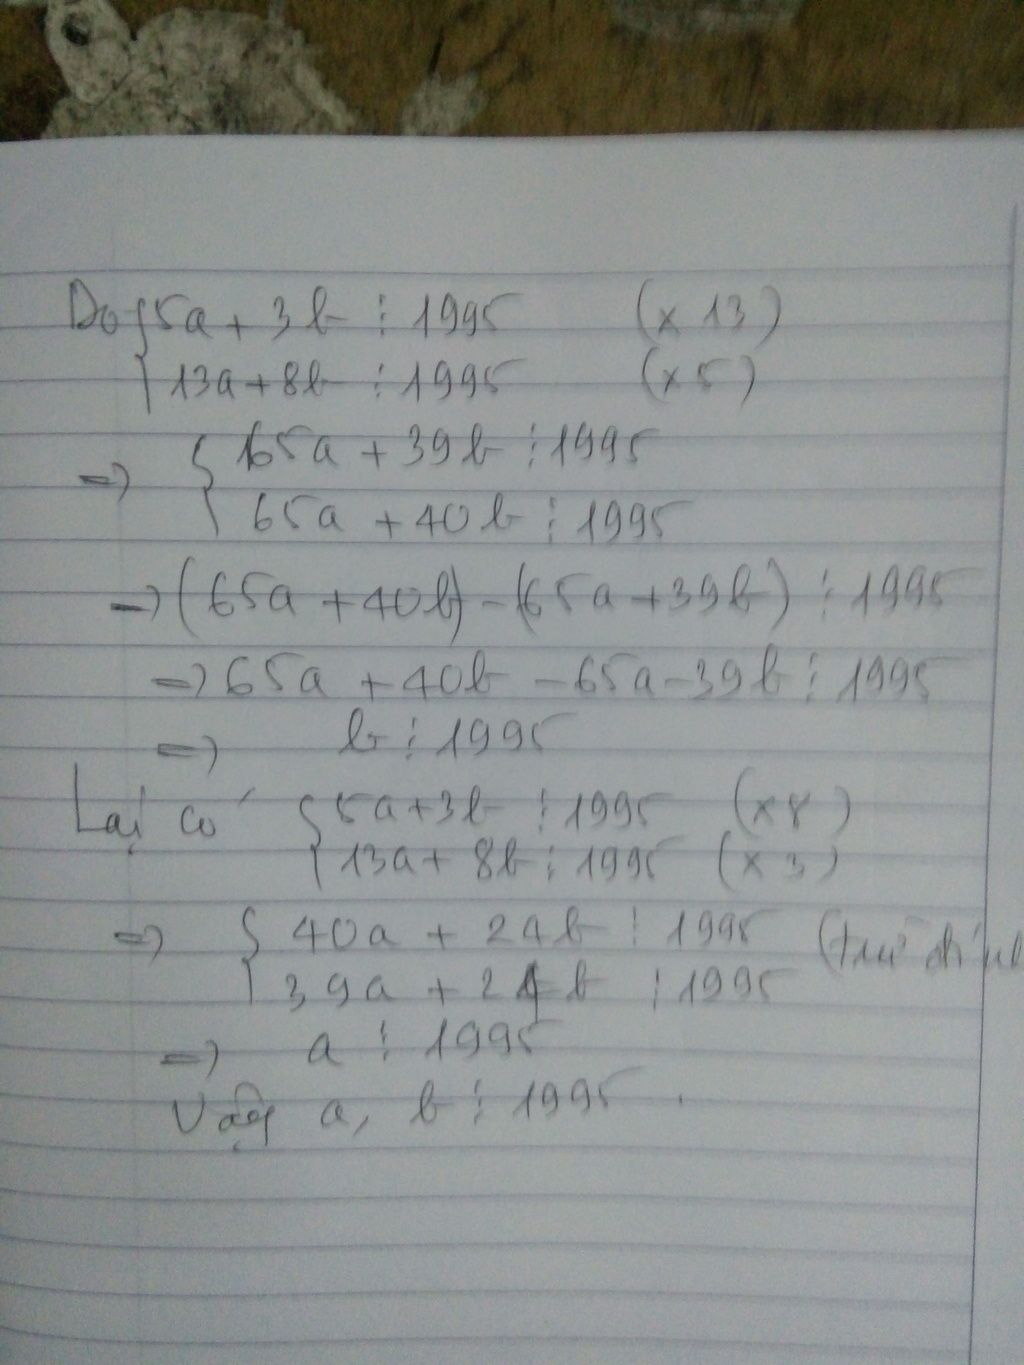 Do { 5a + 3b ⋮ 1995 (x 13)
13a + 8b ⋮ 1995 (x 5)
=> { 65a + 39b ⋮ 1995
65a + 40b ⋮ 1995
=> (65a + 40b) - (65a + 39b) ⋮ 1995
=> 65a + 40b - 65a - 39b ⋮ 1995
=> b ⋮ 1995
Lại có { 5a + 3b ⋮ 1995 (x 8)
13a + 8b ⋮ 1995 (x 3)
=> { 40a + 24b ⋮ 1995 (trừ
39a + 24b ⋮ 1995
=> a ⋮ 1995
Vậy a, b ⋮ 1995.